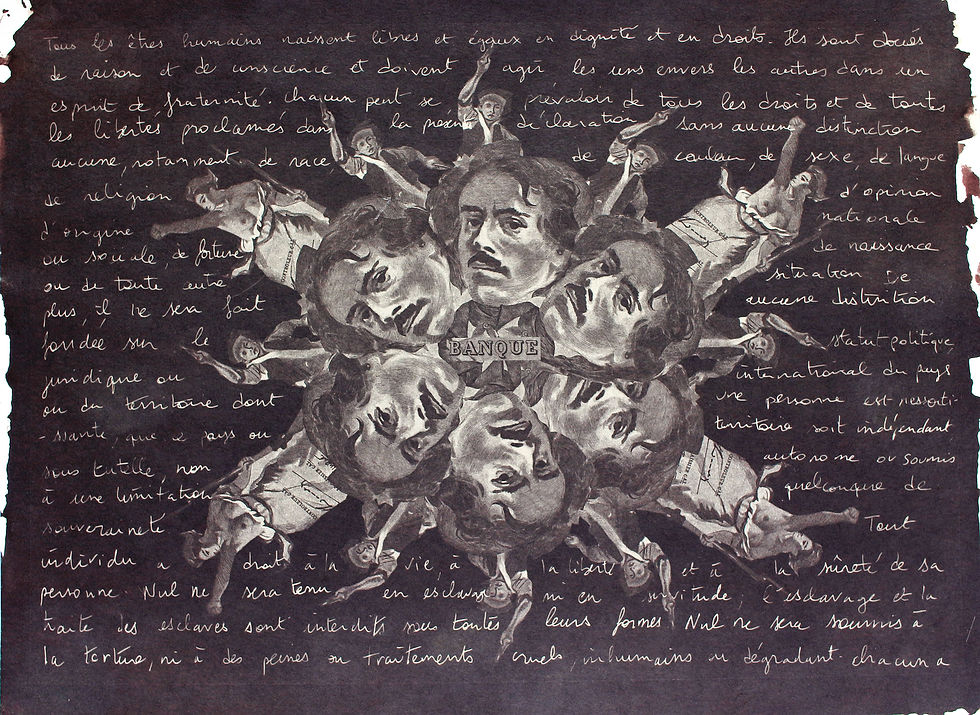 Tous les êtres humains naissent libres et égaux en dignité et en droits. Ils sont doués
de raison et de conscience et doivent agir les uns envers les autres dans un
esprit de fraternité. Chacun peut se prévaloir de tous les droits et de toutes
les libertés proclamés dans la présen déclaration sans aucune distinction
aucune, notamment de race, de couleur, de sexe, de langue
de religion d'opinion
d'origine nationale
ou sociale, de fortune de naissance
ou de toute autre situation De
plus, il ne sera fait aucune distinction
fondée sur le statut politique,
BANQUE
juridique ou international du pays
ou du territoire dont une personne est ressorti-
-ssante, que ce pays ou territoire soit indépendant
sous tutelle, non autonome ou soumis
à une limitation quelconque de
souveraineté Tout
individu a droit à la vie, à la liberté et à la sûreté de sa
personne. Nul ne sera tenu en esclavag ni en servitude, l'esclavage et la
traite des esclaves sont interdits sous toutes leurs formes Nul ne sera soumis à
la torture, ni à des peines ou traitements cruels, inhumains ou dégradant. chacun a